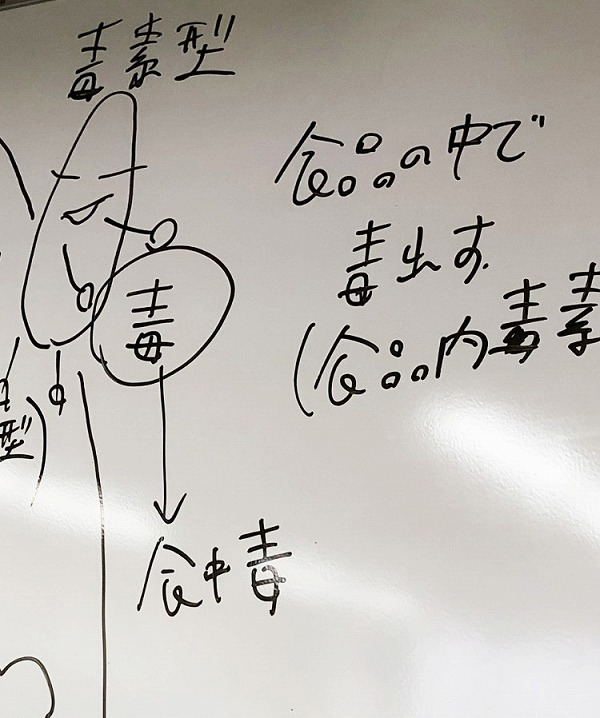 毒素型
食品の中で
毒出す.
(食品内毒素
毒
型)
食中毒